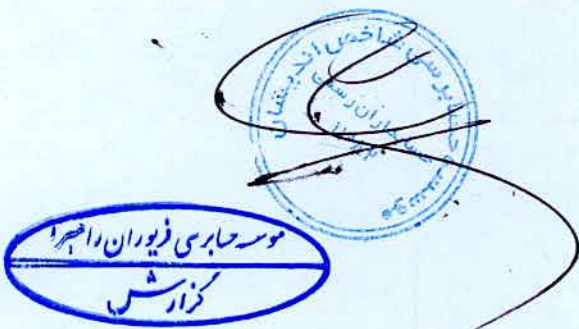 موسسه حسابرسی شاخص اندیشان
حسابداران رسمی
موسسه حسابرسی فریوران راهبرد
گزارش